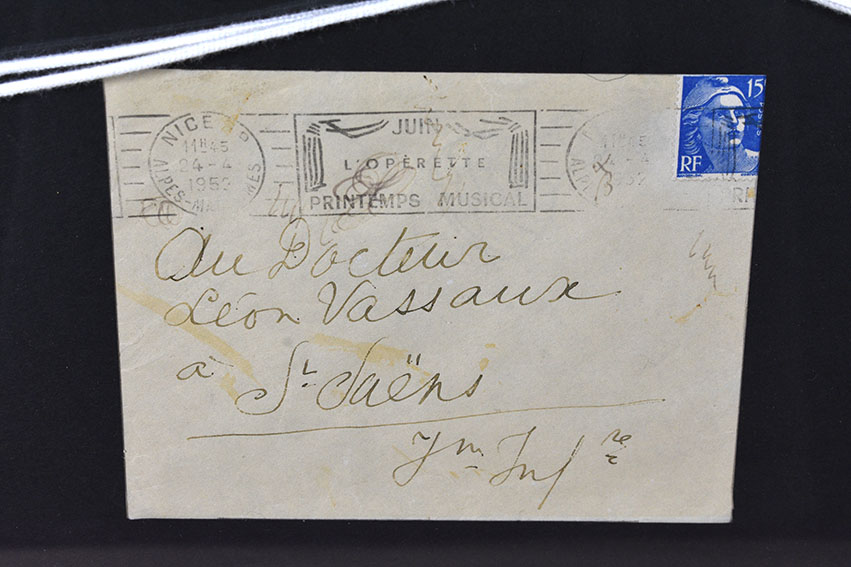 NICE RP
11H45
24-4
1952
ALPES-MARITIMES
JUIN
L'OPÉRETTE
PRINTEMPS MUSICAL
11H45
24-4
1952
15F
POSTES
RF
Au Docteur
Léon Vassaux
à St. Saëns
Infre